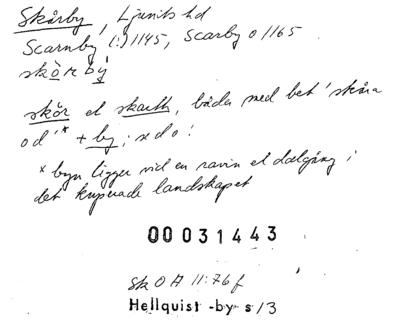 Skårby, Ljunits hd
Scarnby (!) 1145, Scarby o 1165.
skörbý
skör el skarth, båda med bet 'skåra
od'* + by; sdo!
* byn ligger vid en ravin el dalgång i
det kuperade landskapet
00031443
SkOA 11:76 f
Hellquist -by s 13